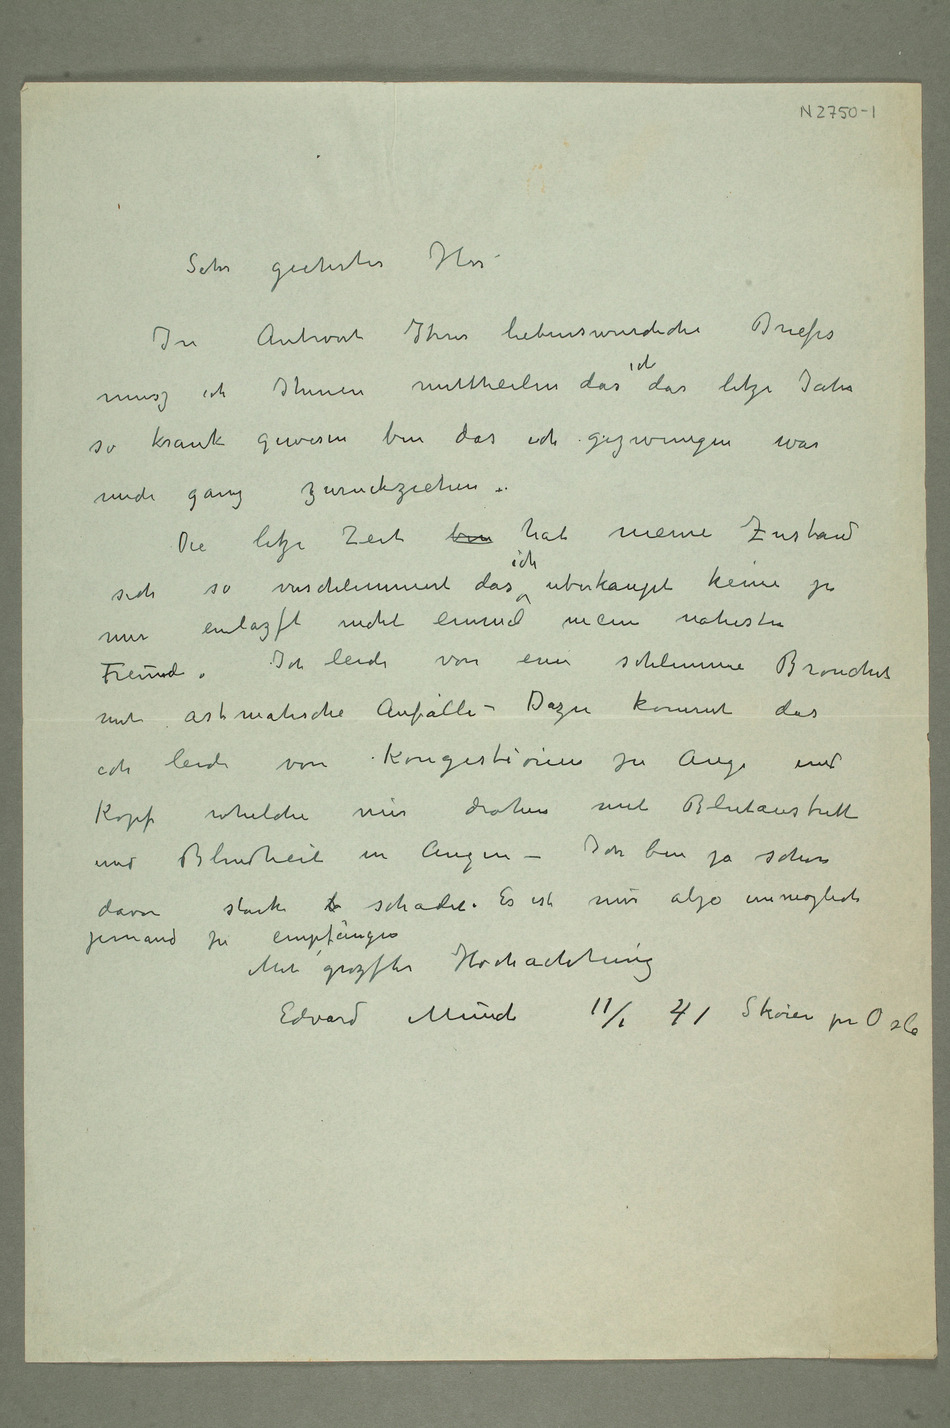 N 2750-1
Sehr geehrter Herr
In Antwort Ihres liebenswürdiche Briefes
musz ich Ihnen mittheilen das ich das letze Jahr
so krank gewesen bin das ich gezwungen war
mich ganz zurückziehen –
Die letze Zeit bin hat meine Zustand
sich so verschlimmert das ich überhaupt keine zu
mir einlazft nicht einmal meine nahesten
Freunde. Ich leide von eine schlimme Bronchit
mit astmatische Anfälle – Dazu kommt das
ich leide von Kongestionen zu Auge und
Kopf whelche mir drohen mit Blutaustritt
und Blindheit in Augen – Ich bin ja schon
davon stark b schadet. Es ist mir also unmöglich
jemand zu empfangen
Mit grözfter Hochachtung
Edvard Munch 11/1 41 Skøien pr Oslo